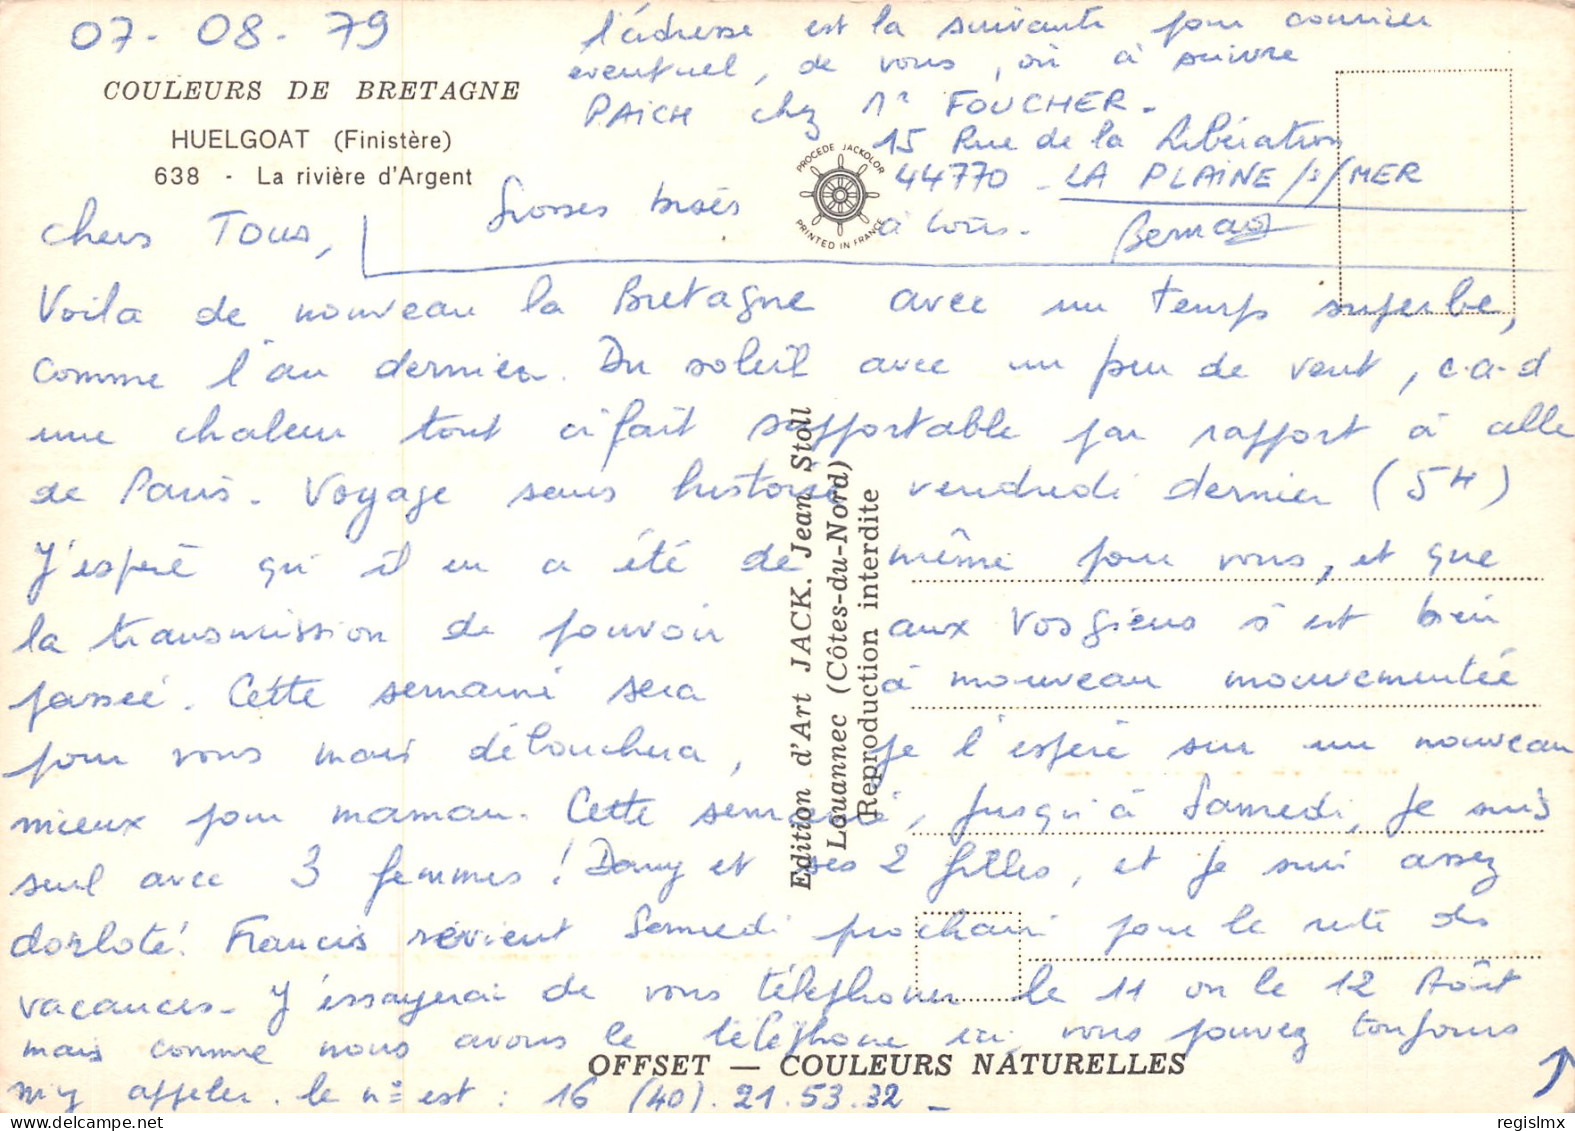 07-08-79
COULEURS DE BRETAGNE
HUELGOAT (Finistère)
638 - La rivière d'Argent
Chers Tous,
Voila de nouveau la Bretagne avec un temps superbe,
comme l'an dernier. Du soleil avec un peu de vent, c-a-d
une chaleur tout à fait supportable par rapport à celle
de Paris. Voyage sans histoire vendredi dernier (5H)
J'espère qu'il en a été de même pour vous, et que
la transmission de pouvoir aux Vosgiens s'est bien
passée. Cette semaine sera à nouveau mouvementée
pour vous mais débouchera, je l'espère sur un nouveau
mieux pour maman. Cette semaine, jusqu'à Samedi, je suis
seul avec 3 femmes! Dany et ses 2 filles, et je suis assez
dorloté! Francis revient Samedi prochain pour le reste des
vacances. J'essayerai de vous téléphoner le 11 ou le 12 Août
mais comme nous avons le téléphone ici, vous pouvez toujours
m'y appeler. le n° est : 16 (40). 21.53.32 -
l'adresse est la suivante pour courrier
éventuel, de vous, ou à suivre
PAICH chez Mr FOUCHER -
15 Rue de la Libération
44770 - LA PLAINE /s/ MER
Grosses bises à tous.
Bernard
PROCEDE JACKOLOR
PRINTED IN FRANCE
Edition d'Art JACK. Jean Stoll
Louannec (Côtes-du-Nord)
Reproduction interdite
OFFSET — COULEURS NATURELLES
regislmx